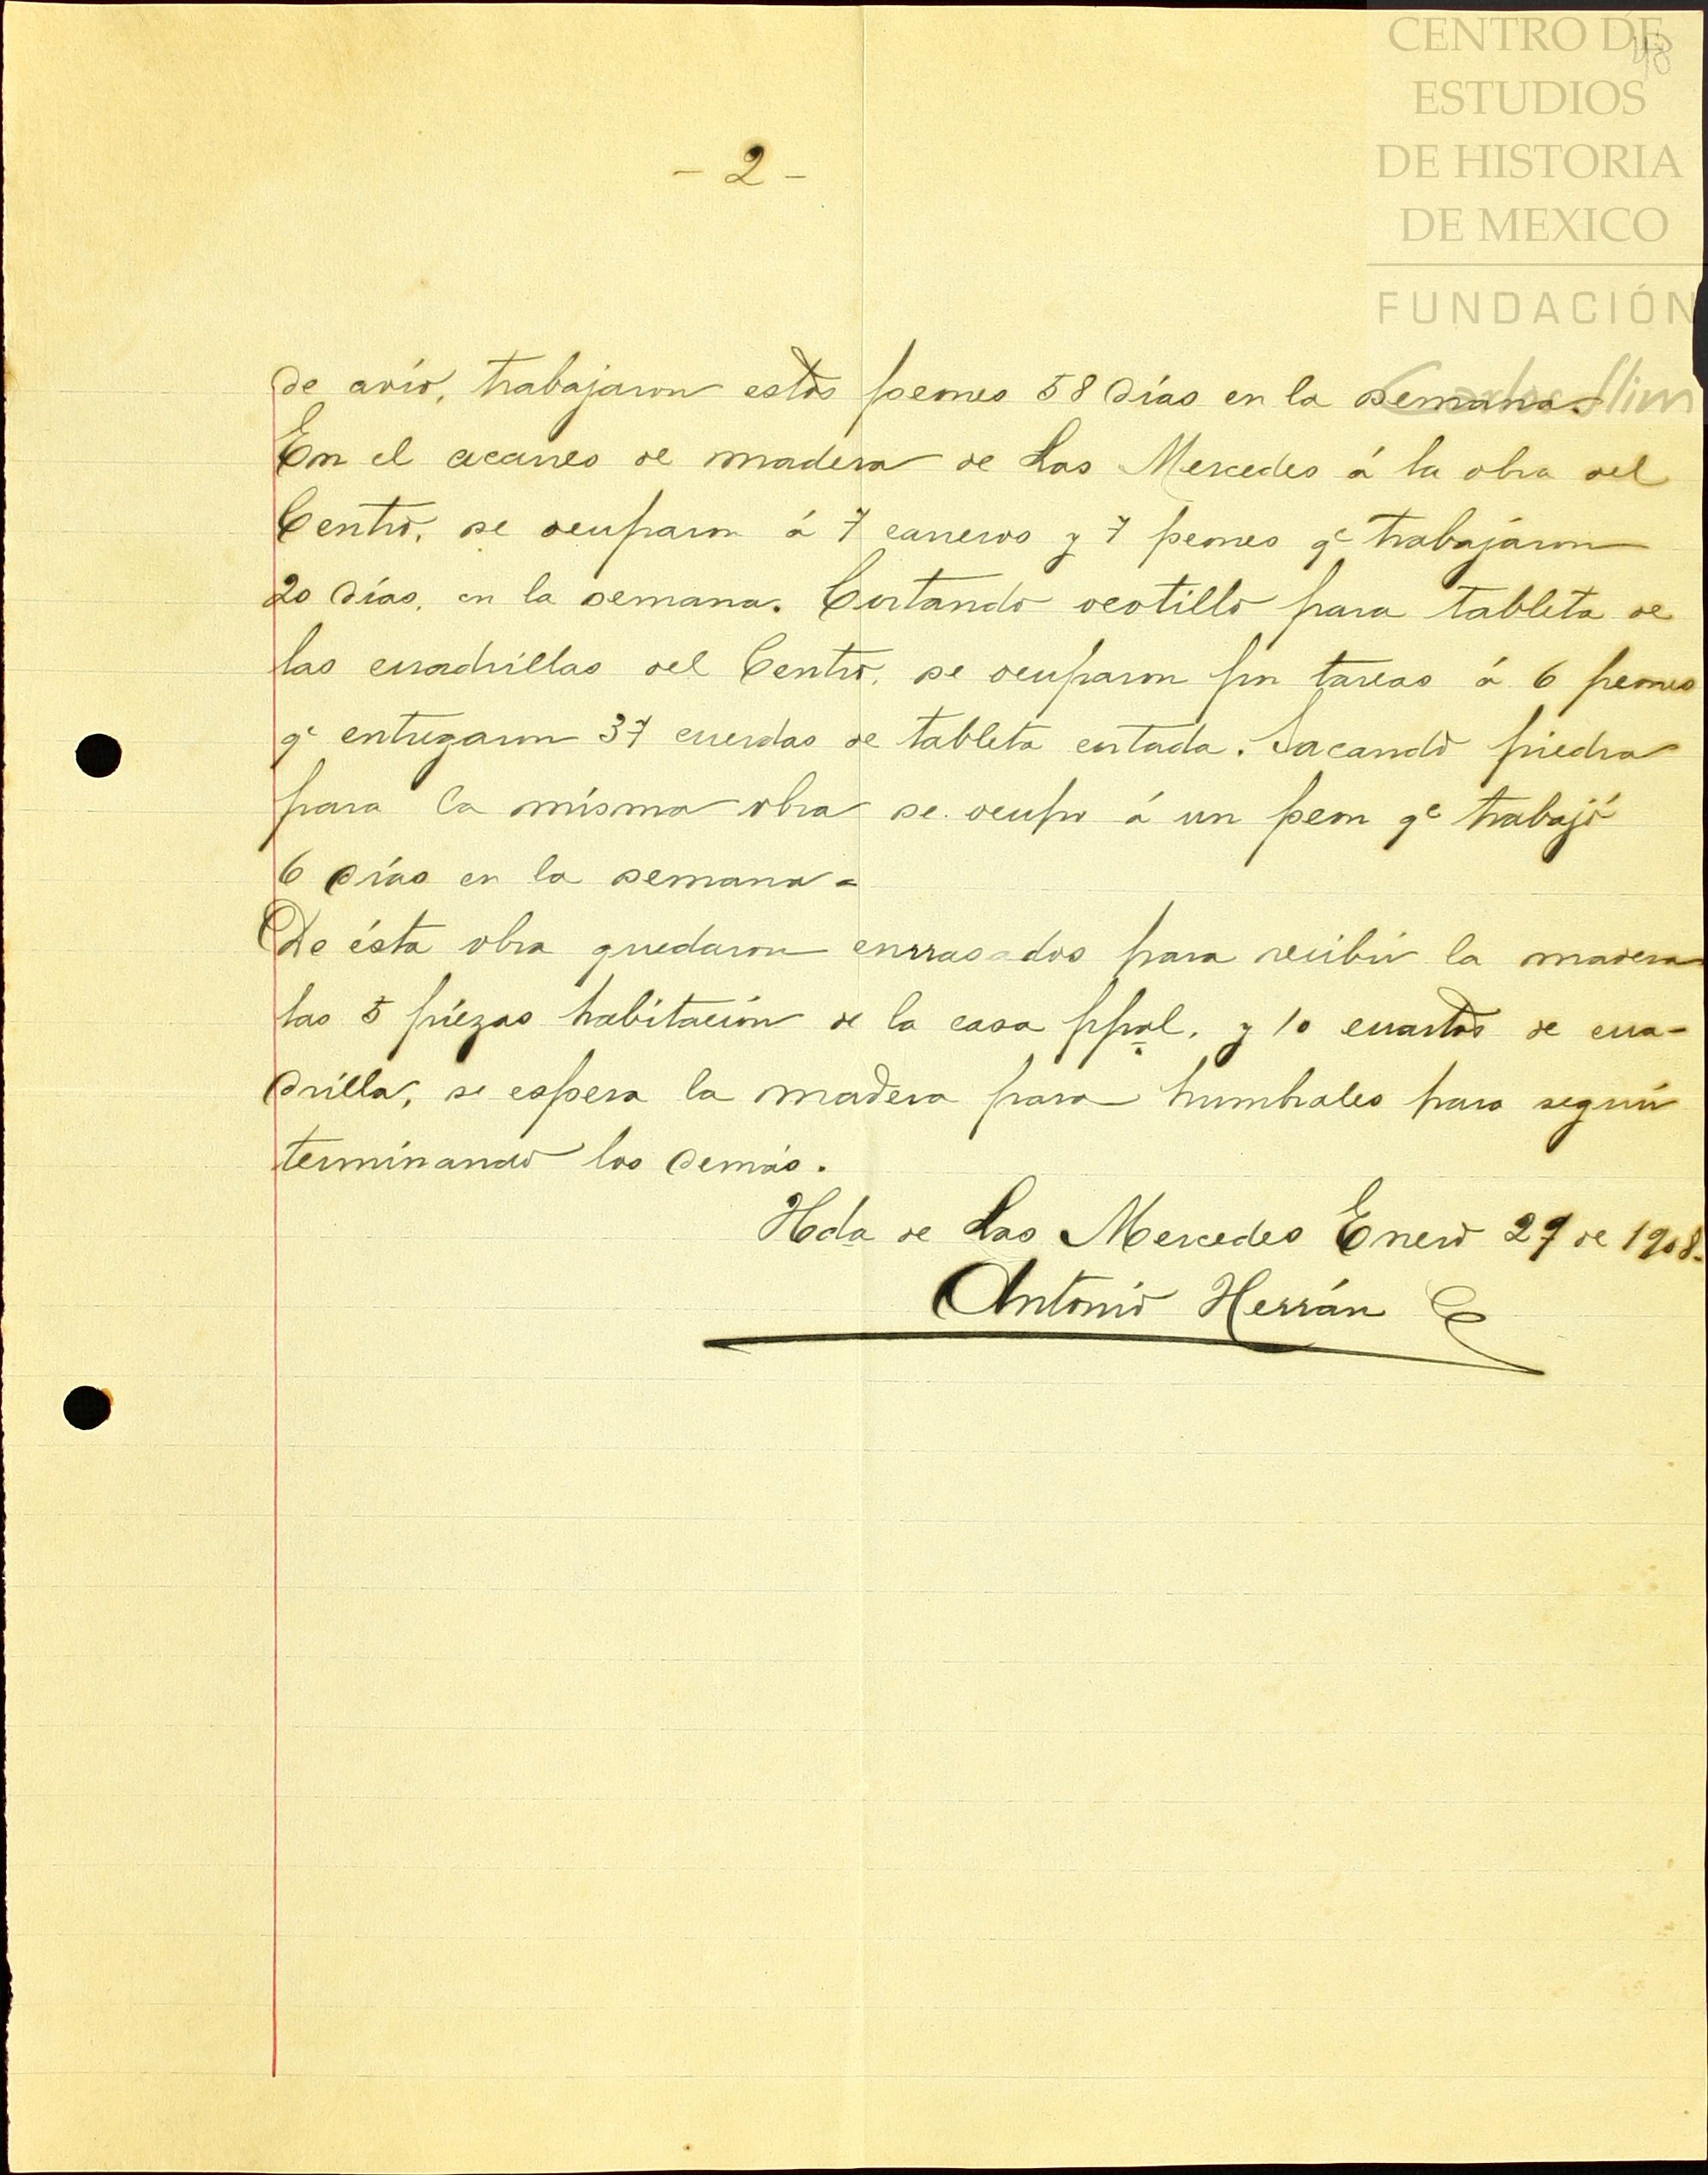 CENTRO DE
ESTUDIOS
DE HISTORIA
DE MEXICO
FUNDACIÓN
Carlos Slim
48
- 2 -
de avío, trabajaron estos peones 58 días en la semana.
En el acarreo de madera de Las Mercedes á la obra del
Centro, se ocuparon á 7 carreros y 7 peones qe trabajaron
20 días, en la semana. Cortando ocotillo para tableta de
las cuadrillas del Centro, se ocuparon por tareas á 6 peones
qe entregaron 37 cuerdas de tableta cortada. Sacando piedra
para la misma obra se ocupo á un peon qe trabajó
6 días en la semana-
De ésta obra quedaron enrrasados para recibir la madera
las 5 piezas habitación de la casa ppal. y 10 cuartos de cua-
drilla, se espera la madera para humbrales para seguir
terminando los demás.
Hda de Las Mercedes Enero 27 de 1908.
Antonio Herrán